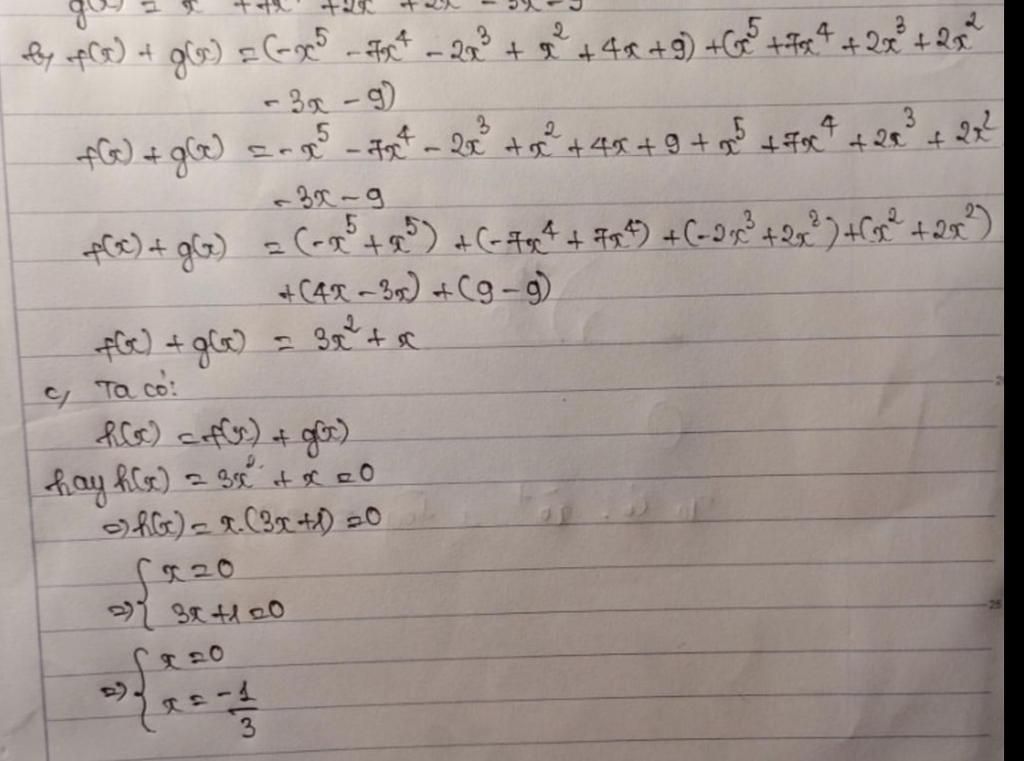 g(x) = x⁵ + 7x⁴ + 2x³ + 2x² - 3x - 9
b, f(x) + g(x) = (-x⁵ - 7x⁴ - 2x³ + x² + 4x + 9) + (x⁵ + 7x⁴ + 2x³ + 2x²
- 3x - 9)
f(x) + g(x) = -x⁵ - 7x⁴ - 2x³ + x² + 4x + 9 + x⁵ + 7x⁴ + 2x³ + 2x²
- 3x - 9
f(x) + g(x) = (-x⁵ + x⁵) + (-7x⁴ + 7x⁴) + (-2x³ + 2x³) + (x² + 2x²)
+ (4x - 3x) + (9 - 9)
f(x) + g(x) = 3x² + x
c, Ta có:
h(x) = f(x) + g(x)
hay h(x) = 3x² + x = 0
=> h(x) = x.(3x + 1) = 0
{ x = 0
=> { 3x + 1 = 0
{ x = 0
=> { x = -1/3
25